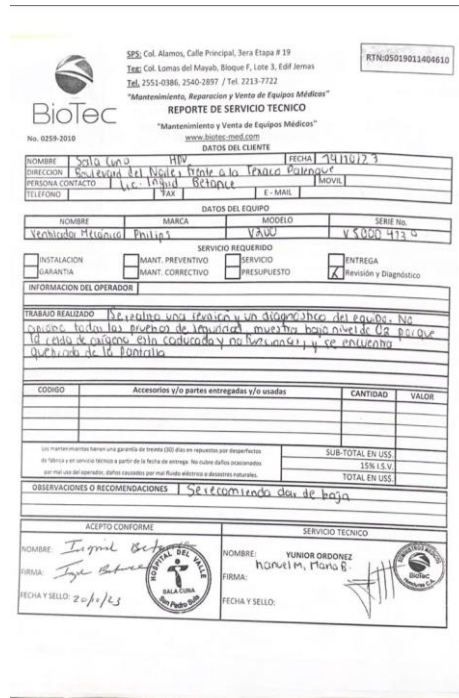 SPS: Col. Alamos, Calle Principal, 3era Etapa # 19
Teg: Col. Lomas del Mayab, Bloque F, Lote 3, Edif Jemas
Tel. 2551-0386, 2540-2897 / Tel. 2213-7722
RTN:05019011404610
"Mantenimiento, Reparacion y Venta de Equipos Médicos"
BioTec
REPORTE DE SERVICIO TECNICO
"Mantenimiento y Venta de Equipos Médicos"
No. 0259-2010
www.biotec-med.com
DATOS DEL CLIENTE
NOMBRE Sala Cuna HDV FECHA 14/10/23
DIRECCION Boulevard del Norte, frente a la Texaco Palenque
PERSONA CONTACTO Lic. Ingrid Betance MOVIL
TELEFONO FAX E - MAIL
DATOS DEL EQUIPO
NOMBRE MARCA MODELO SERIE No.
Ventilador Mecánico Philips V200
SERVICIO REQUERIDO
INSTALACION MANT. PREVENTIVO SERVICIO ENTREGA
GARANTIA MANT. CORRECTIVO PRESUPUESTO Revisión y Diagnóstico
INFORMACION DEL OPERADOR
TRABAJO REALIZADO Se realizo una revision y un diagnóstico del equipo. No
todas las pruebas de seguridad, muestra bajo nivel de O2 porque
la celda de oxigeno esta caducada y no funciona, y se encuentra
quebrado de la pantalla
CODIGO Accesorios y/o partes entregadas y/o usadas CANTIDAD VALOR
Los mantenimientos tienen una garantía de treinta (30) días en repuestos por desperfectos
de fábrica y en servicio técnico a partir de la fecha de entrega. No cubre daños ocasionados
por mal uso del operador, daños causados por mal fluido eléctrico o desastres naturales.
SUB-TOTAL EN US$.
15% I.S.V.
TOTAL EN US$.
OBSERVACIONES O RECOMENDACIONES Se recomienda dar de baja
ACEPTO CONFORME SERVICIO TECNICO
NOMBRE: Ingrid Betance
NOMBRE: YUNIOR ORDONEZ
Manuel M, Maria B.
FIRMA:
FIRMA:
FECHA Y SELLO: 20/10/23
FECHA Y SELLO:
HOSPITAL DEL VALLE
SALA CUNA
San Pedro Sula
BioTec
Honduras C.A.